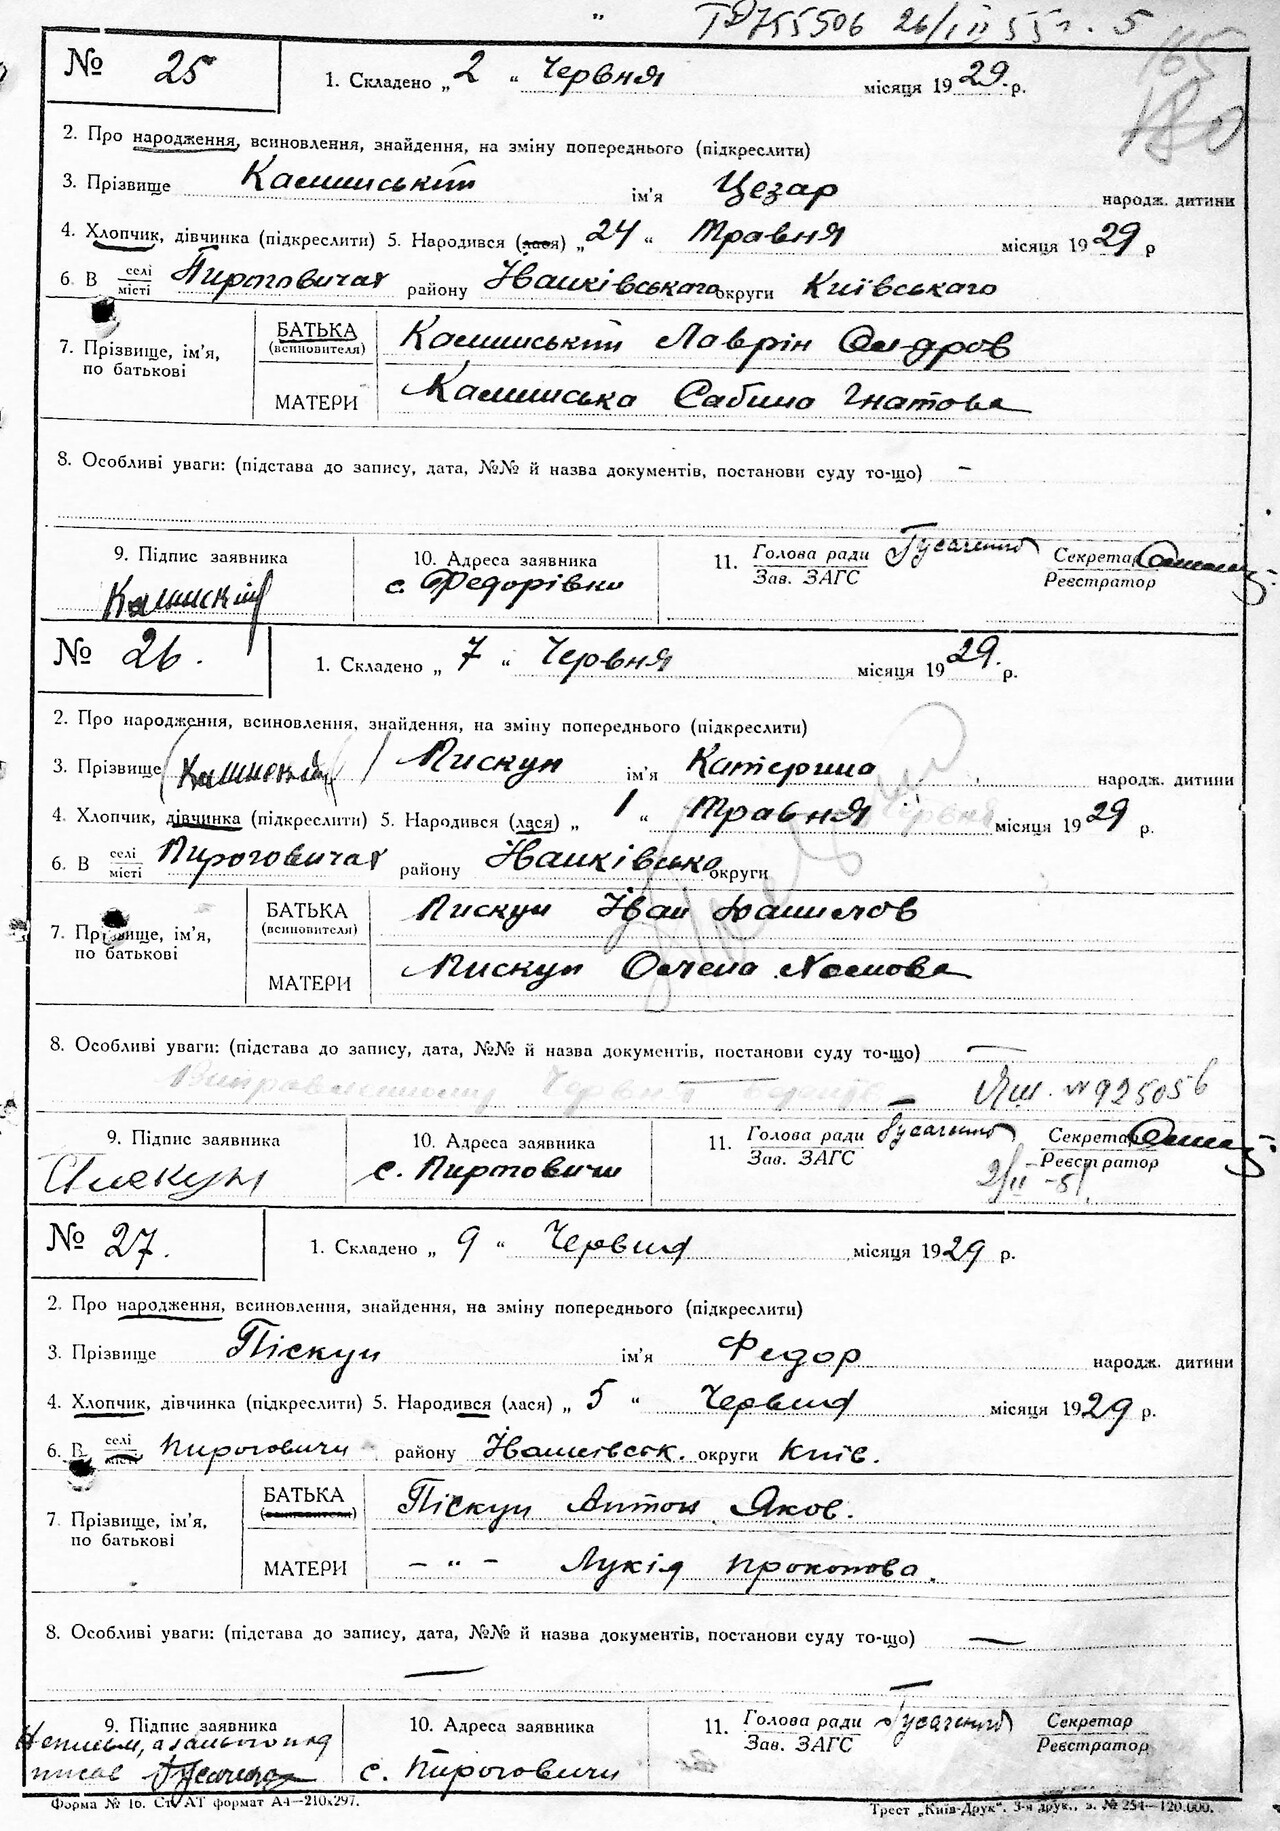 26/III 55 г. 5
165
180
№ 25 1. Складено „2“ Червня місяця 1929 р.
2. Про народження, всиновлення, знайдення, на зміну попереднього (підкреслити)
3. Прізвище Калинський ім'я Цезар народж. дитини
4. Хлопчик, дівчинка (підкреслити) 5. Народився (лася) „24“ Травня місяця 1929 р
6. В селі місті Пироговичах району Іванківського округи Київського
7. Прізвище, ім'я, по батькові
БАТЬКА (всиновителя) Калинський Лаврін
МАТЕРИ Калинська Сабина Гнатова
8. Особливі уваги: (підстава до запису, дата, №№ й назва документів, постанови суду то-що) —
9. Підпис заявника 10. Адреса заявника 11. Голова ради Гусаченко Секретар
Зав. ЗАГС Реєстратор
Калинский с. Федорівка
№ 26. 1. Складено „7“ Червня місяця 1929. р.
2. Про народження, всиновлення, знайдення, на зміну попереднього (підкреслити)
3. Прізвище (Калинский) Пискун ім'я Катерина народж. дитини
4. Хлопчик, дівчинка (підкреслити) 5. Народився (лася) „1“ Травня Червня місяця 1929 р.
6. В селі місті Пироговичах району Іванківсько округи
7. Прізвище, ім'я, по батькові
БАТЬКА (всиновителя) Пискун Іван Данилов
МАТЕРИ Пискун Олена
8. Особливі уваги: (підстава до запису, дата, №№ й назва документів, постанови суду то-що) —
Червня — № 925056
9. Підпис заявника 10. Адреса заявника 11. Голова ради Гусаченко Секретар
Зав. ЗАГС Реєстратор
Пискун с. Пироговичи 2/II-51
№ 27. 1. Складено „9“ Червня місяця 1929 р.
2. Про народження, всиновлення, знайдення, на зміну попереднього (підкреслити)
3. Прізвище Піскун ім'я Федор народж. дитини
4. Хлопчик, дівчинка (підкреслити) 5. Народився (лася) „5“ Червня місяця 1929 р.
6. В селі місті Пироговичи району Іванківськ. округи Київ.
7. Прізвище, ім'я, по батькові
БАТЬКА (всиновителя) Піскун Антон Яков.
МАТЕРИ — „ — Лукія Прокопова.
8. Особливі уваги: (підстава до запису, дата, №№ й назва документів, постанови суду то-що) —
—
9. Підпис заявника 10. Адреса заявника 11. Голова ради Гусаченко Секретар
Зав. ЗАГС Реєстратор
с. Пироговичи
Форма № 16. Ст. АТ формат А4—210х297.
Трест „Київ-Друк“. 3-я друк., з. № 254—120.000.